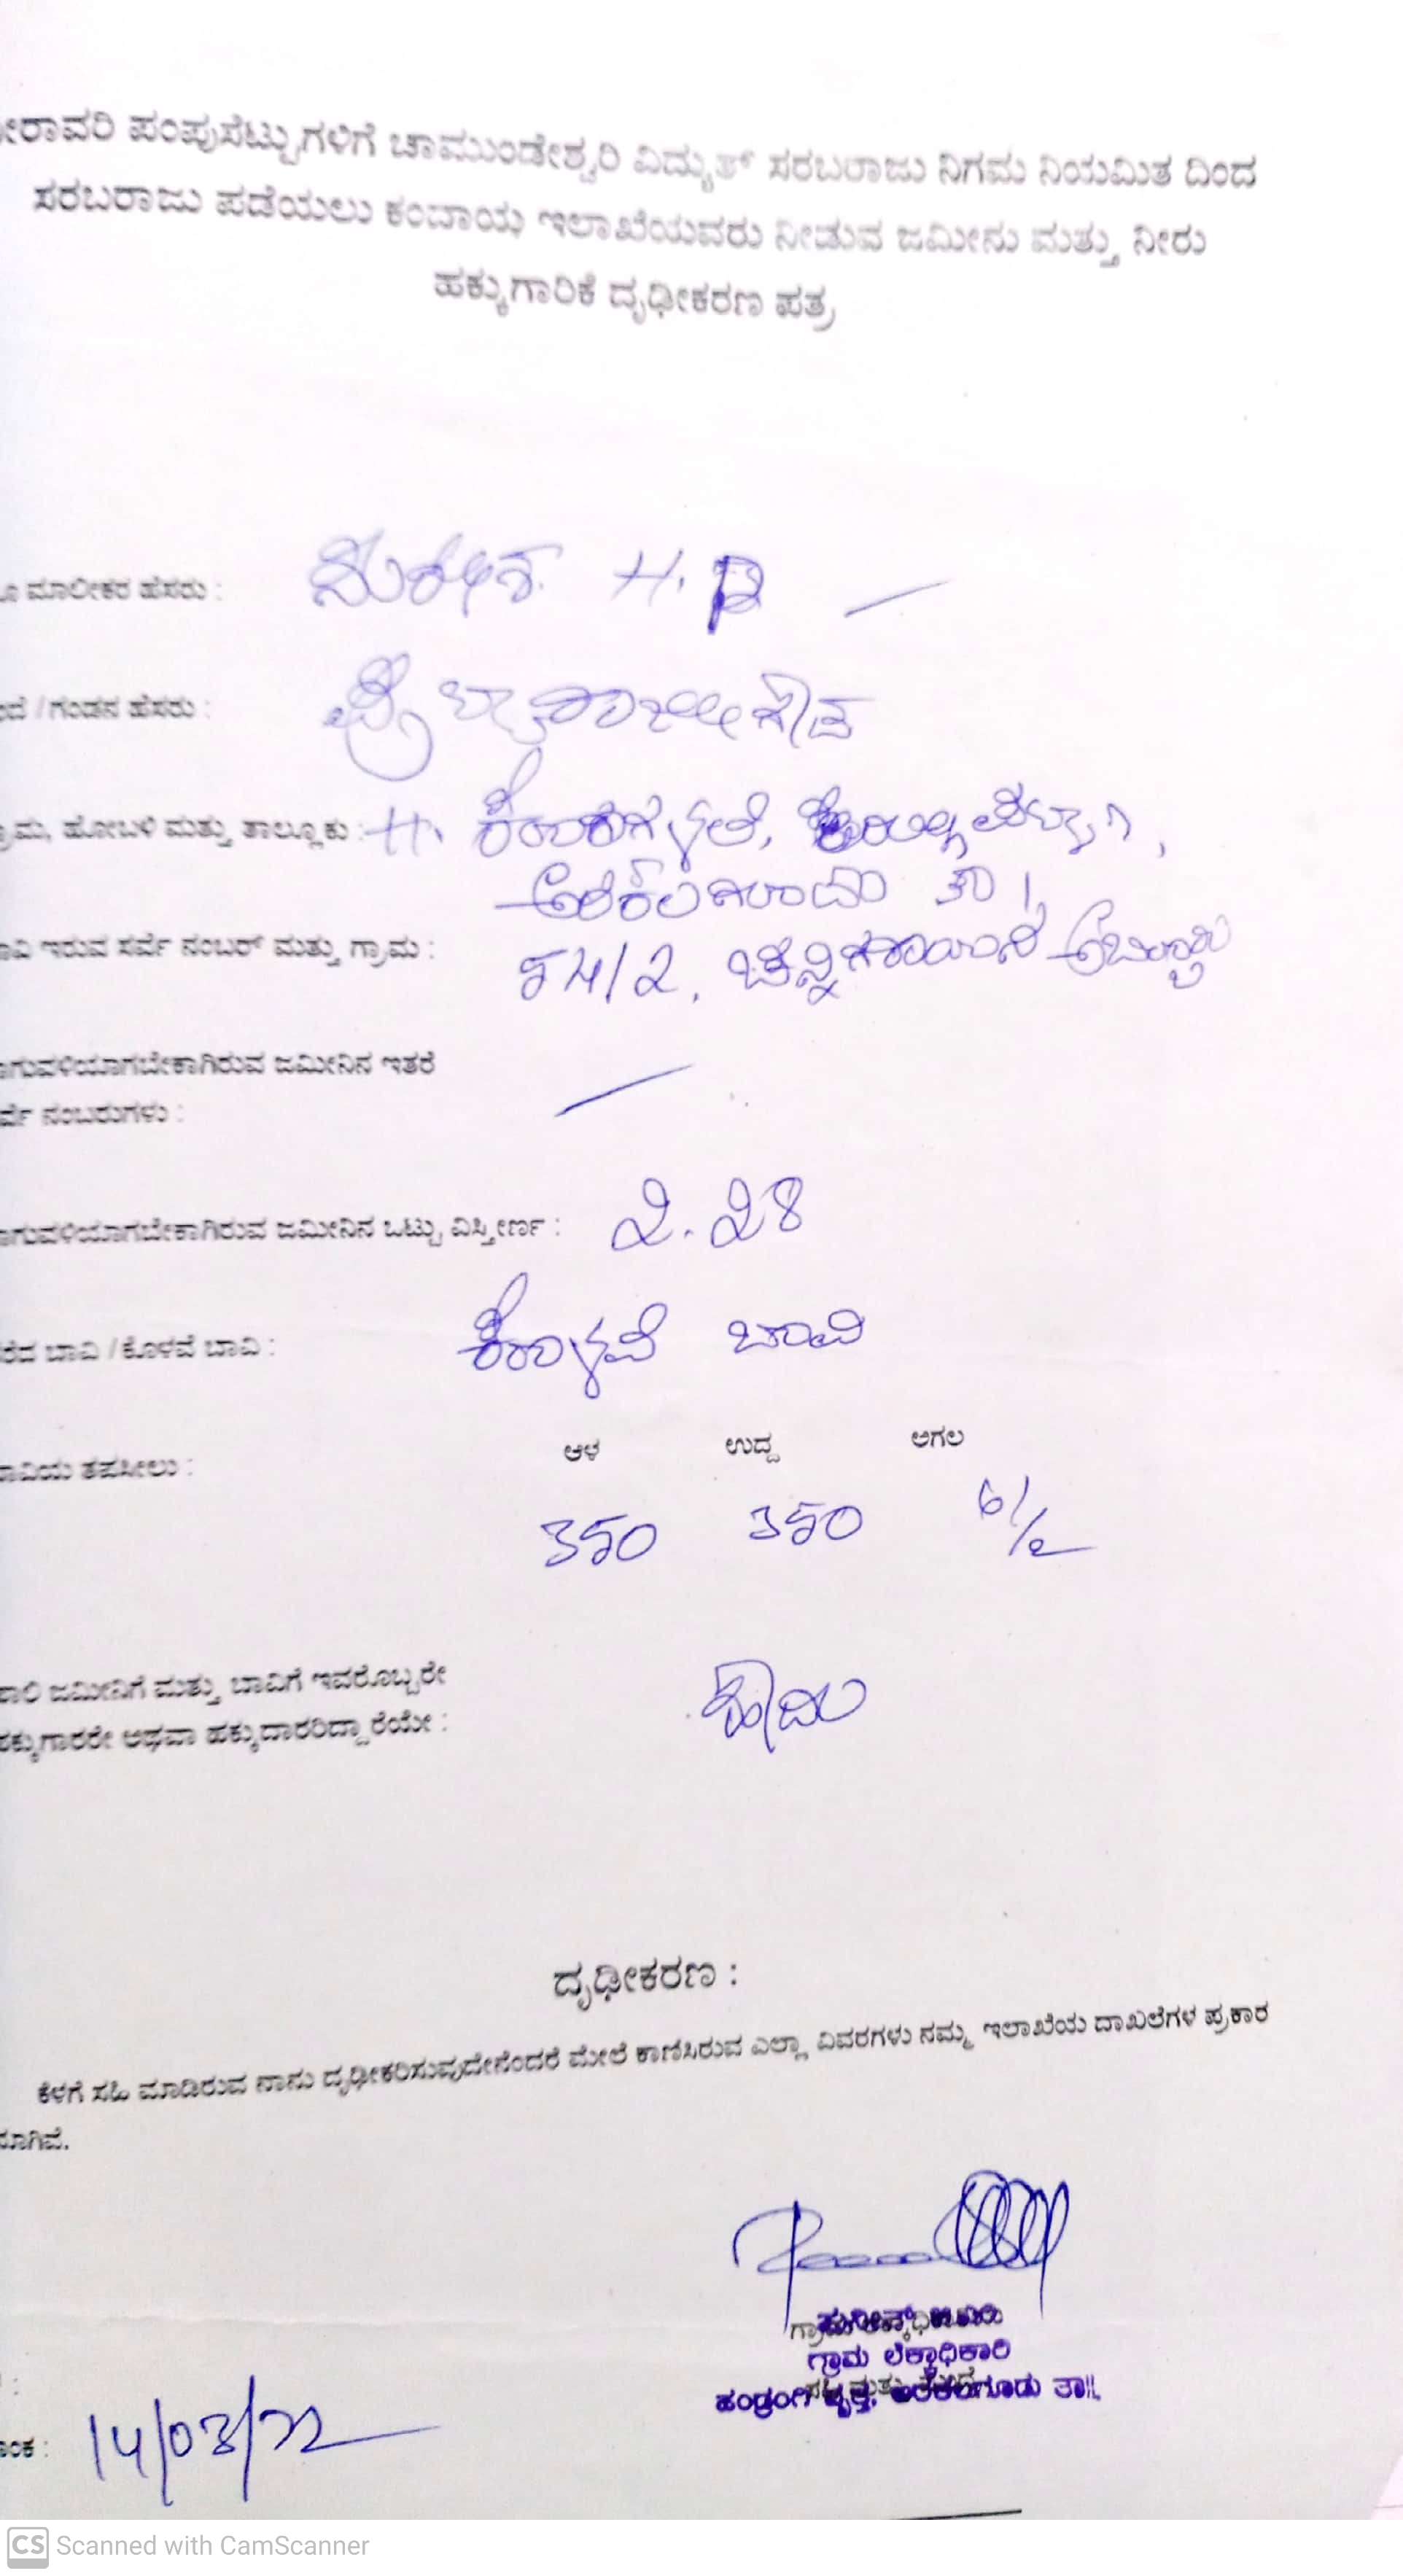 ೀರಾವರಿ ಪಂಪುಸೆಟ್ಟುಗಳಿಗೆ ಚಾಮುಂಡೇಶ್ವರಿ ವಿದ್ಯುತ್ ಸರಬರಾಜು ನಿಗಮ ನಿಯಮಿತ ದಿಂದ
ಸರಬರಾಜು ಪಡೆಯಲು ಕಂದಾಯ ಇಲಾಖೆಯವರು ನೀಡುವ ಜಮೀನು ಮತ್ತು ನೀರು
ಹಕ್ಕುಗಾರಿಕೆ ದೃಢೀಕರಣ ಪತ್ರ
ಮಾಲೀಕರ ಹೆಸರು : H. D
/ಗಂಡನ ಹೆಸರು :
ಹೋಬಳಿ ಮತ್ತು ತಾಲ್ಲೂಕು : H.
ಅರಕಲಗೂಡು ತಾ|
ಇರುವ ಸರ್ವೆ ನಂಬರ್ ಮತ್ತು ಗ್ರಾಮ : 54/2,
ಾಗುವಳಿಯಾಗಬೇಕಾಗಿರುವ ಜಮೀನಿನ ಇತರೆ
ರ್ವೆ ನಂಬರುಗಳು :
ಾಗುವಳಿಯಾಗಬೇಕಾಗಿರುವ ಜಮೀನಿನ ಒಟ್ಟು ವಿಸ್ತೀರ್ಣ : 2.28
ರೆದ ಬಾವಿ /ಕೊಳವೆ ಬಾವಿ : ಕೊಳವೆ ಬಾವಿ
ಆಳ ಉದ್ದ ಅಗಲ
ಾವಿಯ ತಪಸೀಲು :
350 350 6½
ಾಲಿ ಜಮೀನಿಗೆ ಮತ್ತು ಬಾವಿಗೆ ಇವರೊಬ್ಬರೇ
ಹಕ್ಕುಗಾರರೇ ಅಥವಾ ಹಕ್ಕುದಾರರಿದ್ದಾರೆಯೇ : ಹೌದು
ದೃಢೀಕರಣ :
ಕೆಳಗೆ ಸಹಿ ಮಾಡಿರುವ ನಾನು ದೃಢೀಕರಿಸುವುದೇನೆಂದರೆ ಮೇಲೆ ಕಾಣಿಸಿರುವ ಎಲ್ಲಾ ವಿವರಗಳು ನಮ್ಮ ಇಲಾಖೆಯ ದಾಖಲೆಗಳ ಪ್ರಕಾರ
ಯಾಗಿವೆ.
ಗ್ರಾಮ ಲೆಕ್ಕಾಧಿಕಾರಿ
ಹಂಡ್ರಂಗಿ ವೃತ್ತ, ಅರಕಲಗೂಡು ತಾ||
ಾಂಕ : 14/03/22
CS Scanned with CamScanner